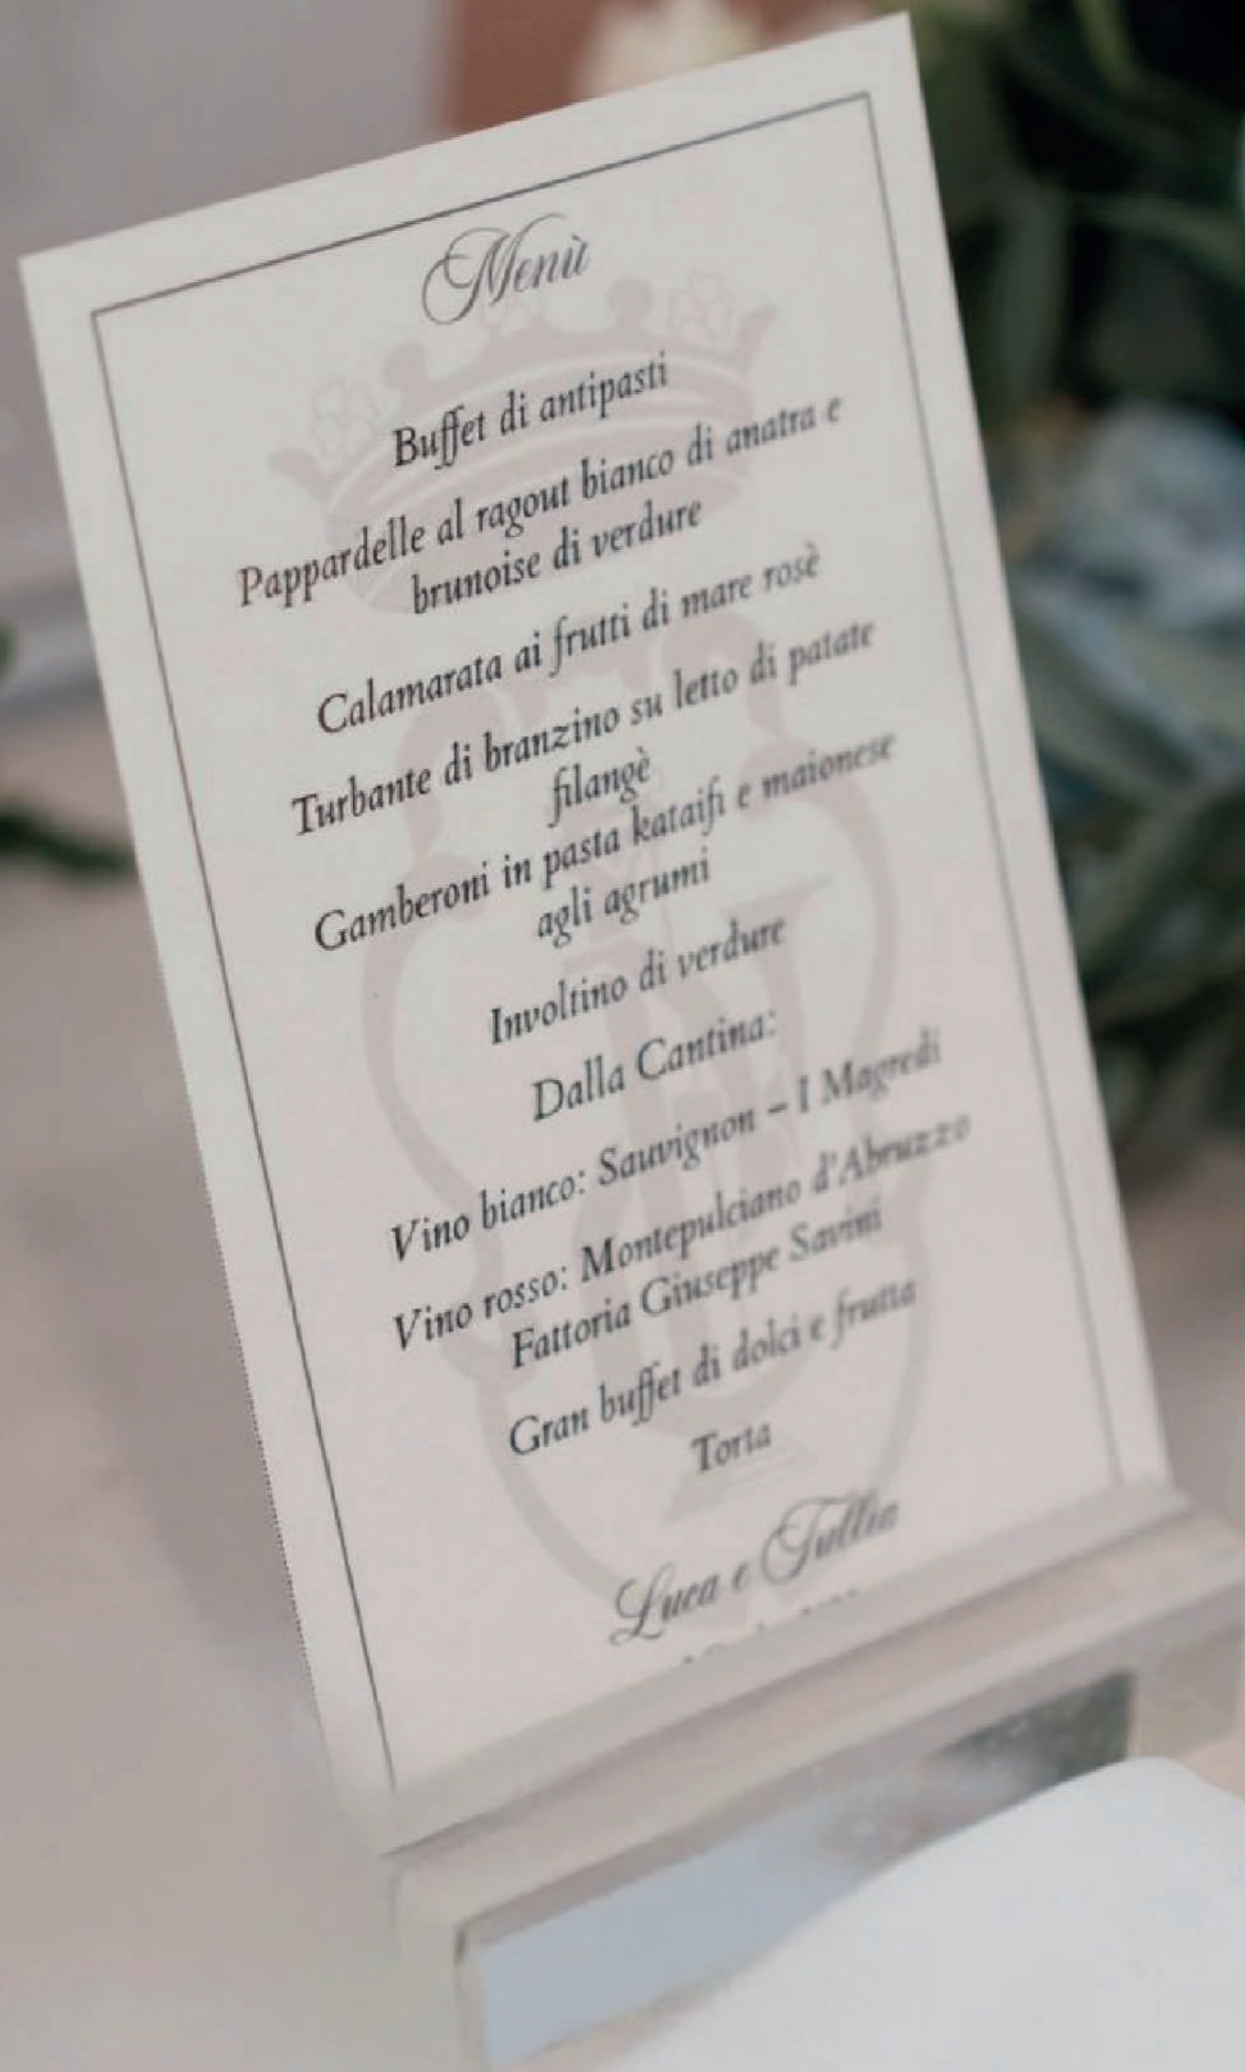 Menù
Buffet di antipasti
Pappardelle al ragout bianco di anatra e
brunoise di verdure
Calamarata ai frutti di mare rosè
Turbante di branzino su letto di patate
filangè
Gamberoni in pasta kataifi e maionese
agli agrumi
Involtino di verdure
Dalla Cantina:
Vino bianco: Sauvignon – I Magredi
Vino rosso: Montepulciano d'Abruzzo
Fattoria Giuseppe Savini
Gran buffet di dolci e frutta
Torta
Luca e Tullia